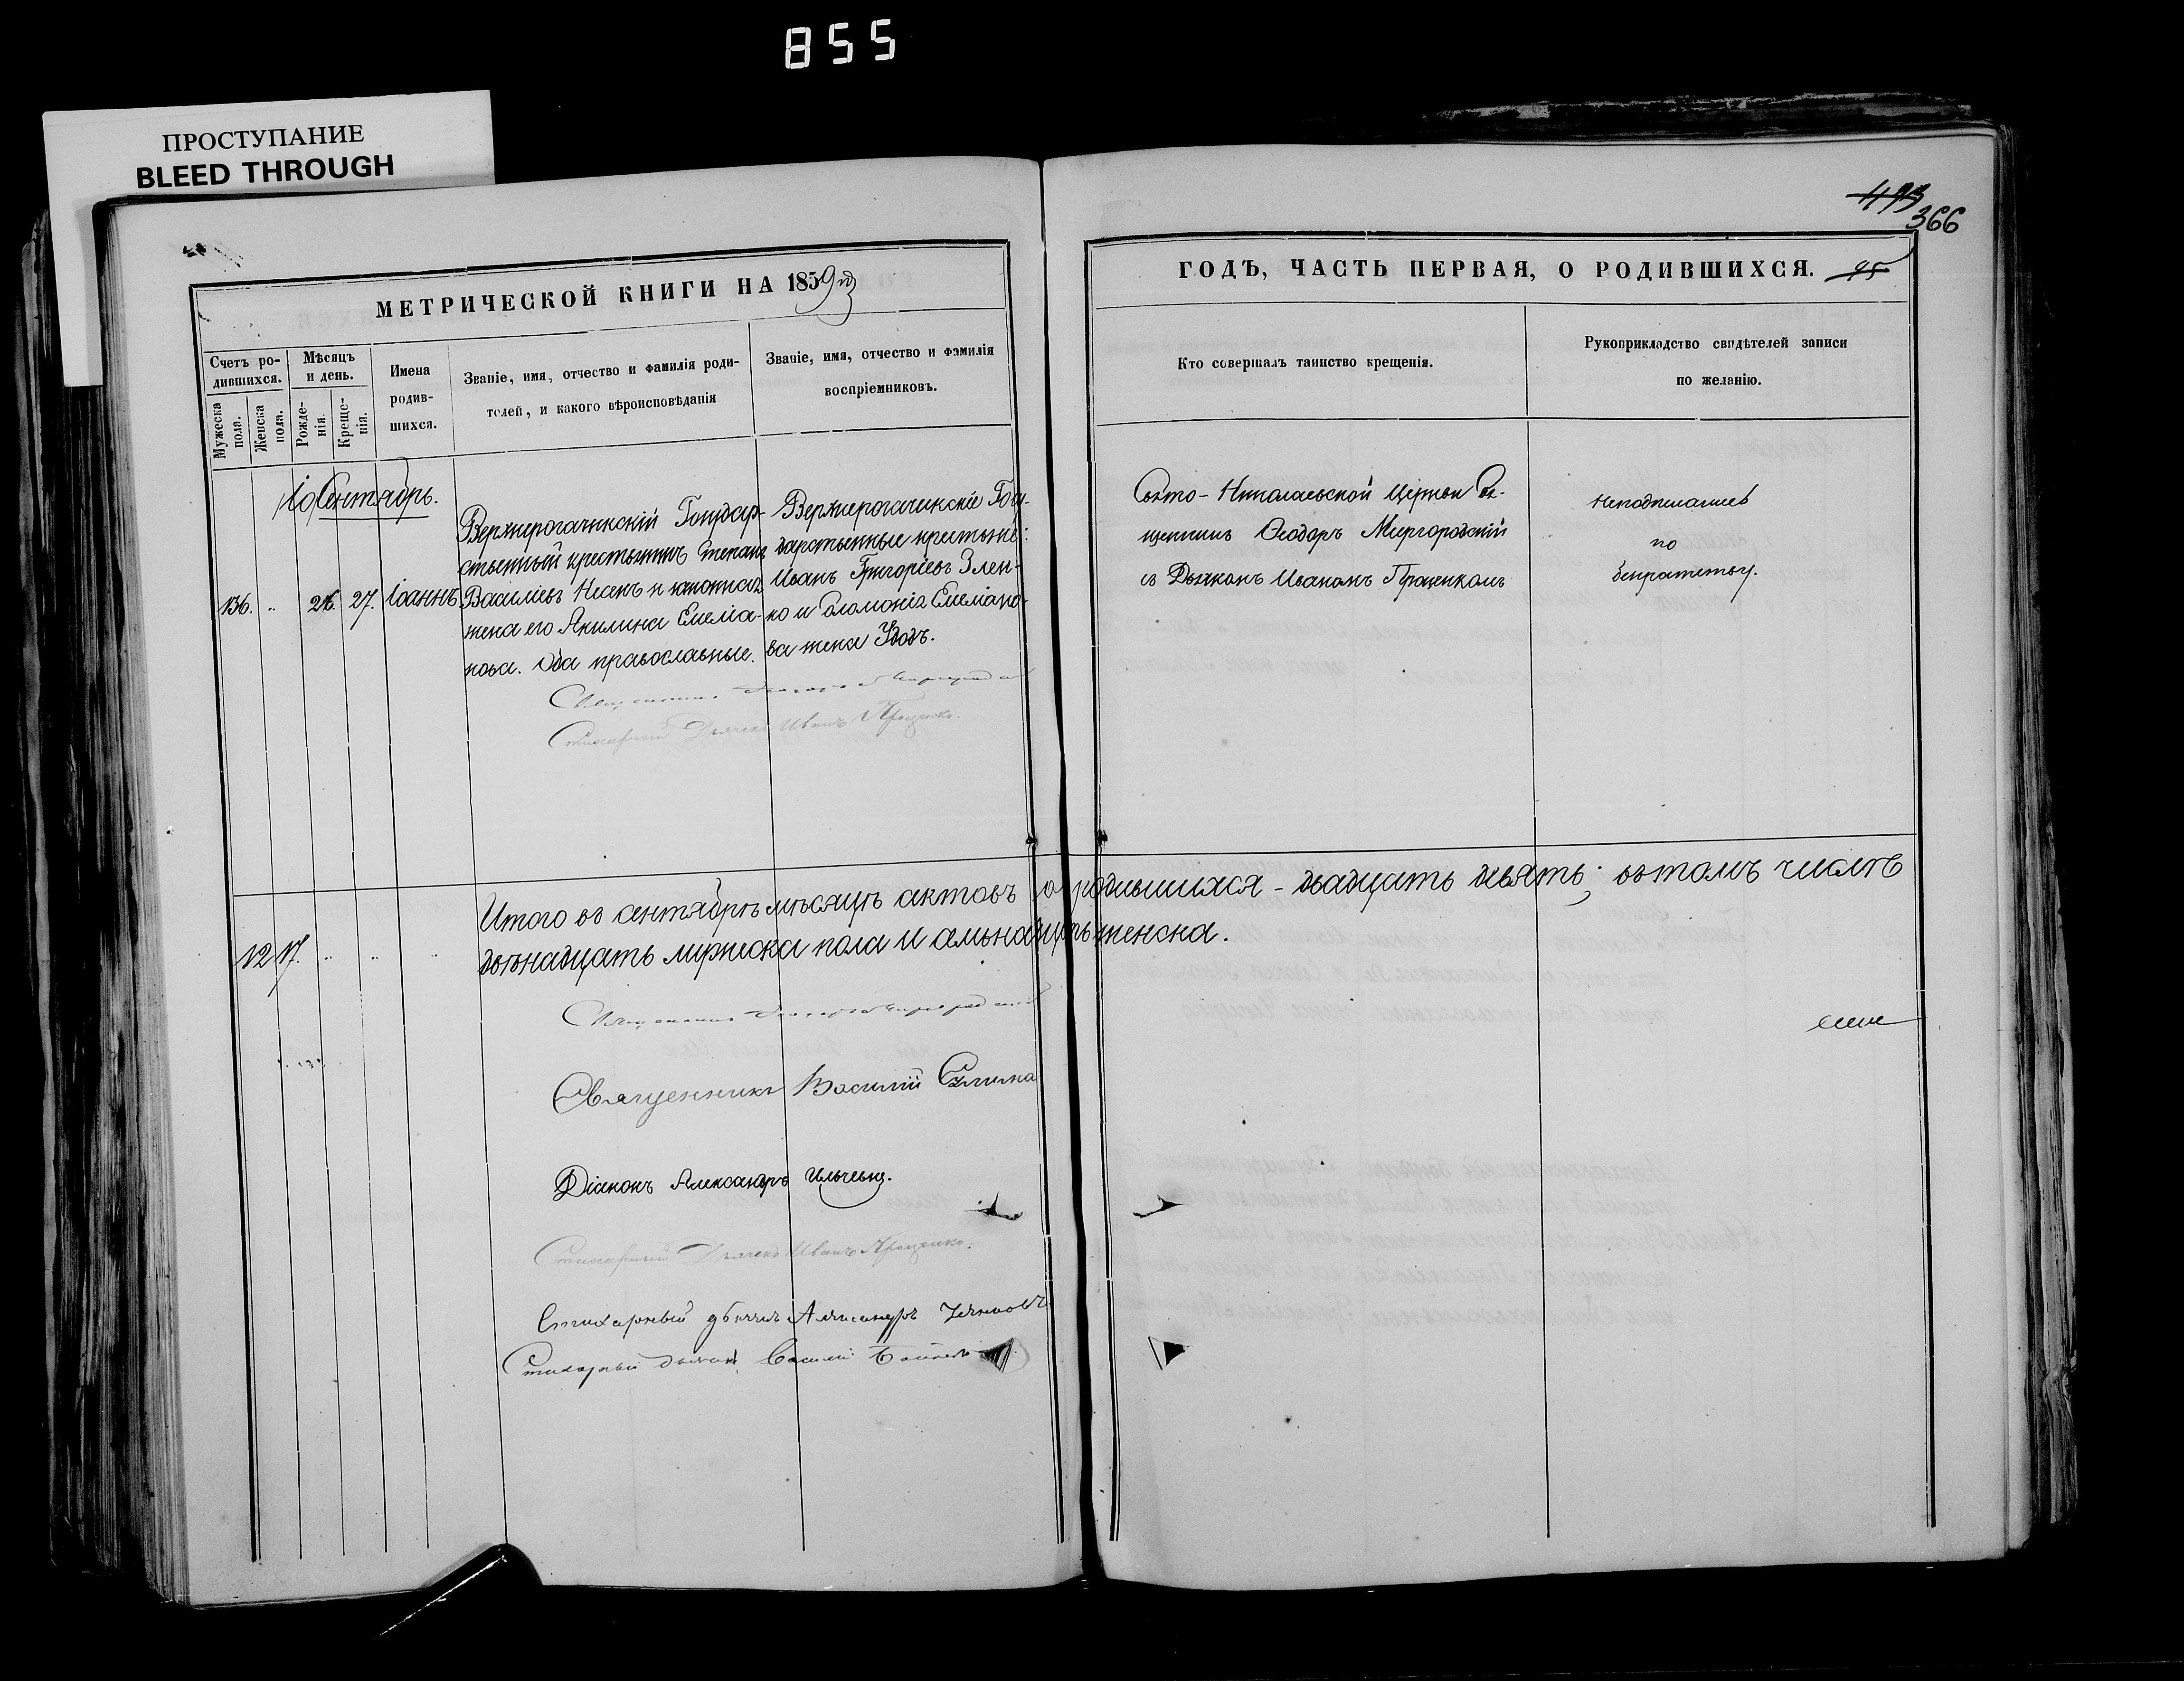 855
ПРОСТУПАНИЕ
BLEED THROUGH
473
366
МЕТРИЧЕСКОЙ КНИГИ НА 1859й
ГОДЪ, ЧАСТЬ ПЕРВАЯ, О РОДИВШИХСЯ. 95
Счетъ ро-
дившихся.
Мужеска
пола.
Женска
пола.
Мѣсяцъ
и день.
Рожде-
нія.
Креще-
нія.
Имена
родив-
шихся.
Званіе, имя, отчество и фамилія роди-
телей, и какого вѣроисповѣданія
Званіе, имя, отчество и фамилія
воспріемниковъ.
Кто совершалъ таинство крещенія.
Рукоприкладство свидѣтелей записи
по желанію.
Сентябрь.
136. " 26. 27. Іоаннъ
Верхнерогачикскій Государ-
ственный крестьянинъ Степанъ
Василіевъ Несенъ и законная
жена его Акилина Емеліа-
нова. Оба православные.
Верхнерогачикскіе Госу-
дарственные крестьяне:
Иванъ Григоріевъ Злен-
ко и Соломонія Емеліано-
ва жена Удодъ.
Свято-Николаевской Церкви Свя-
щенникъ Ѳеодоръ Миргородскій
съ Дьячкомъ Иваномъ Проценкомъ
Неподписались
по
безграмотству.
Священникъ Ѳеодоръ Миргородскій
Стихарный Дьячекъ Иванъ Проценко.
12 17. " " "
Итого въ сентябрѣ мѣсяцѣ актовъ о родившихся - двадцать девять; въ томъ числѣ
двѣнадцать мужеска пола и семьнадцать женска.
Священникъ Ѳеодоръ Миргородскій
Священникъ Василій
Діаконъ Александръ Ильчевъ.
Стихарный Дьячекъ Иванъ Проценко.
Стихарный дьячекъ Александръ
Стихарный дьячекъ Василій